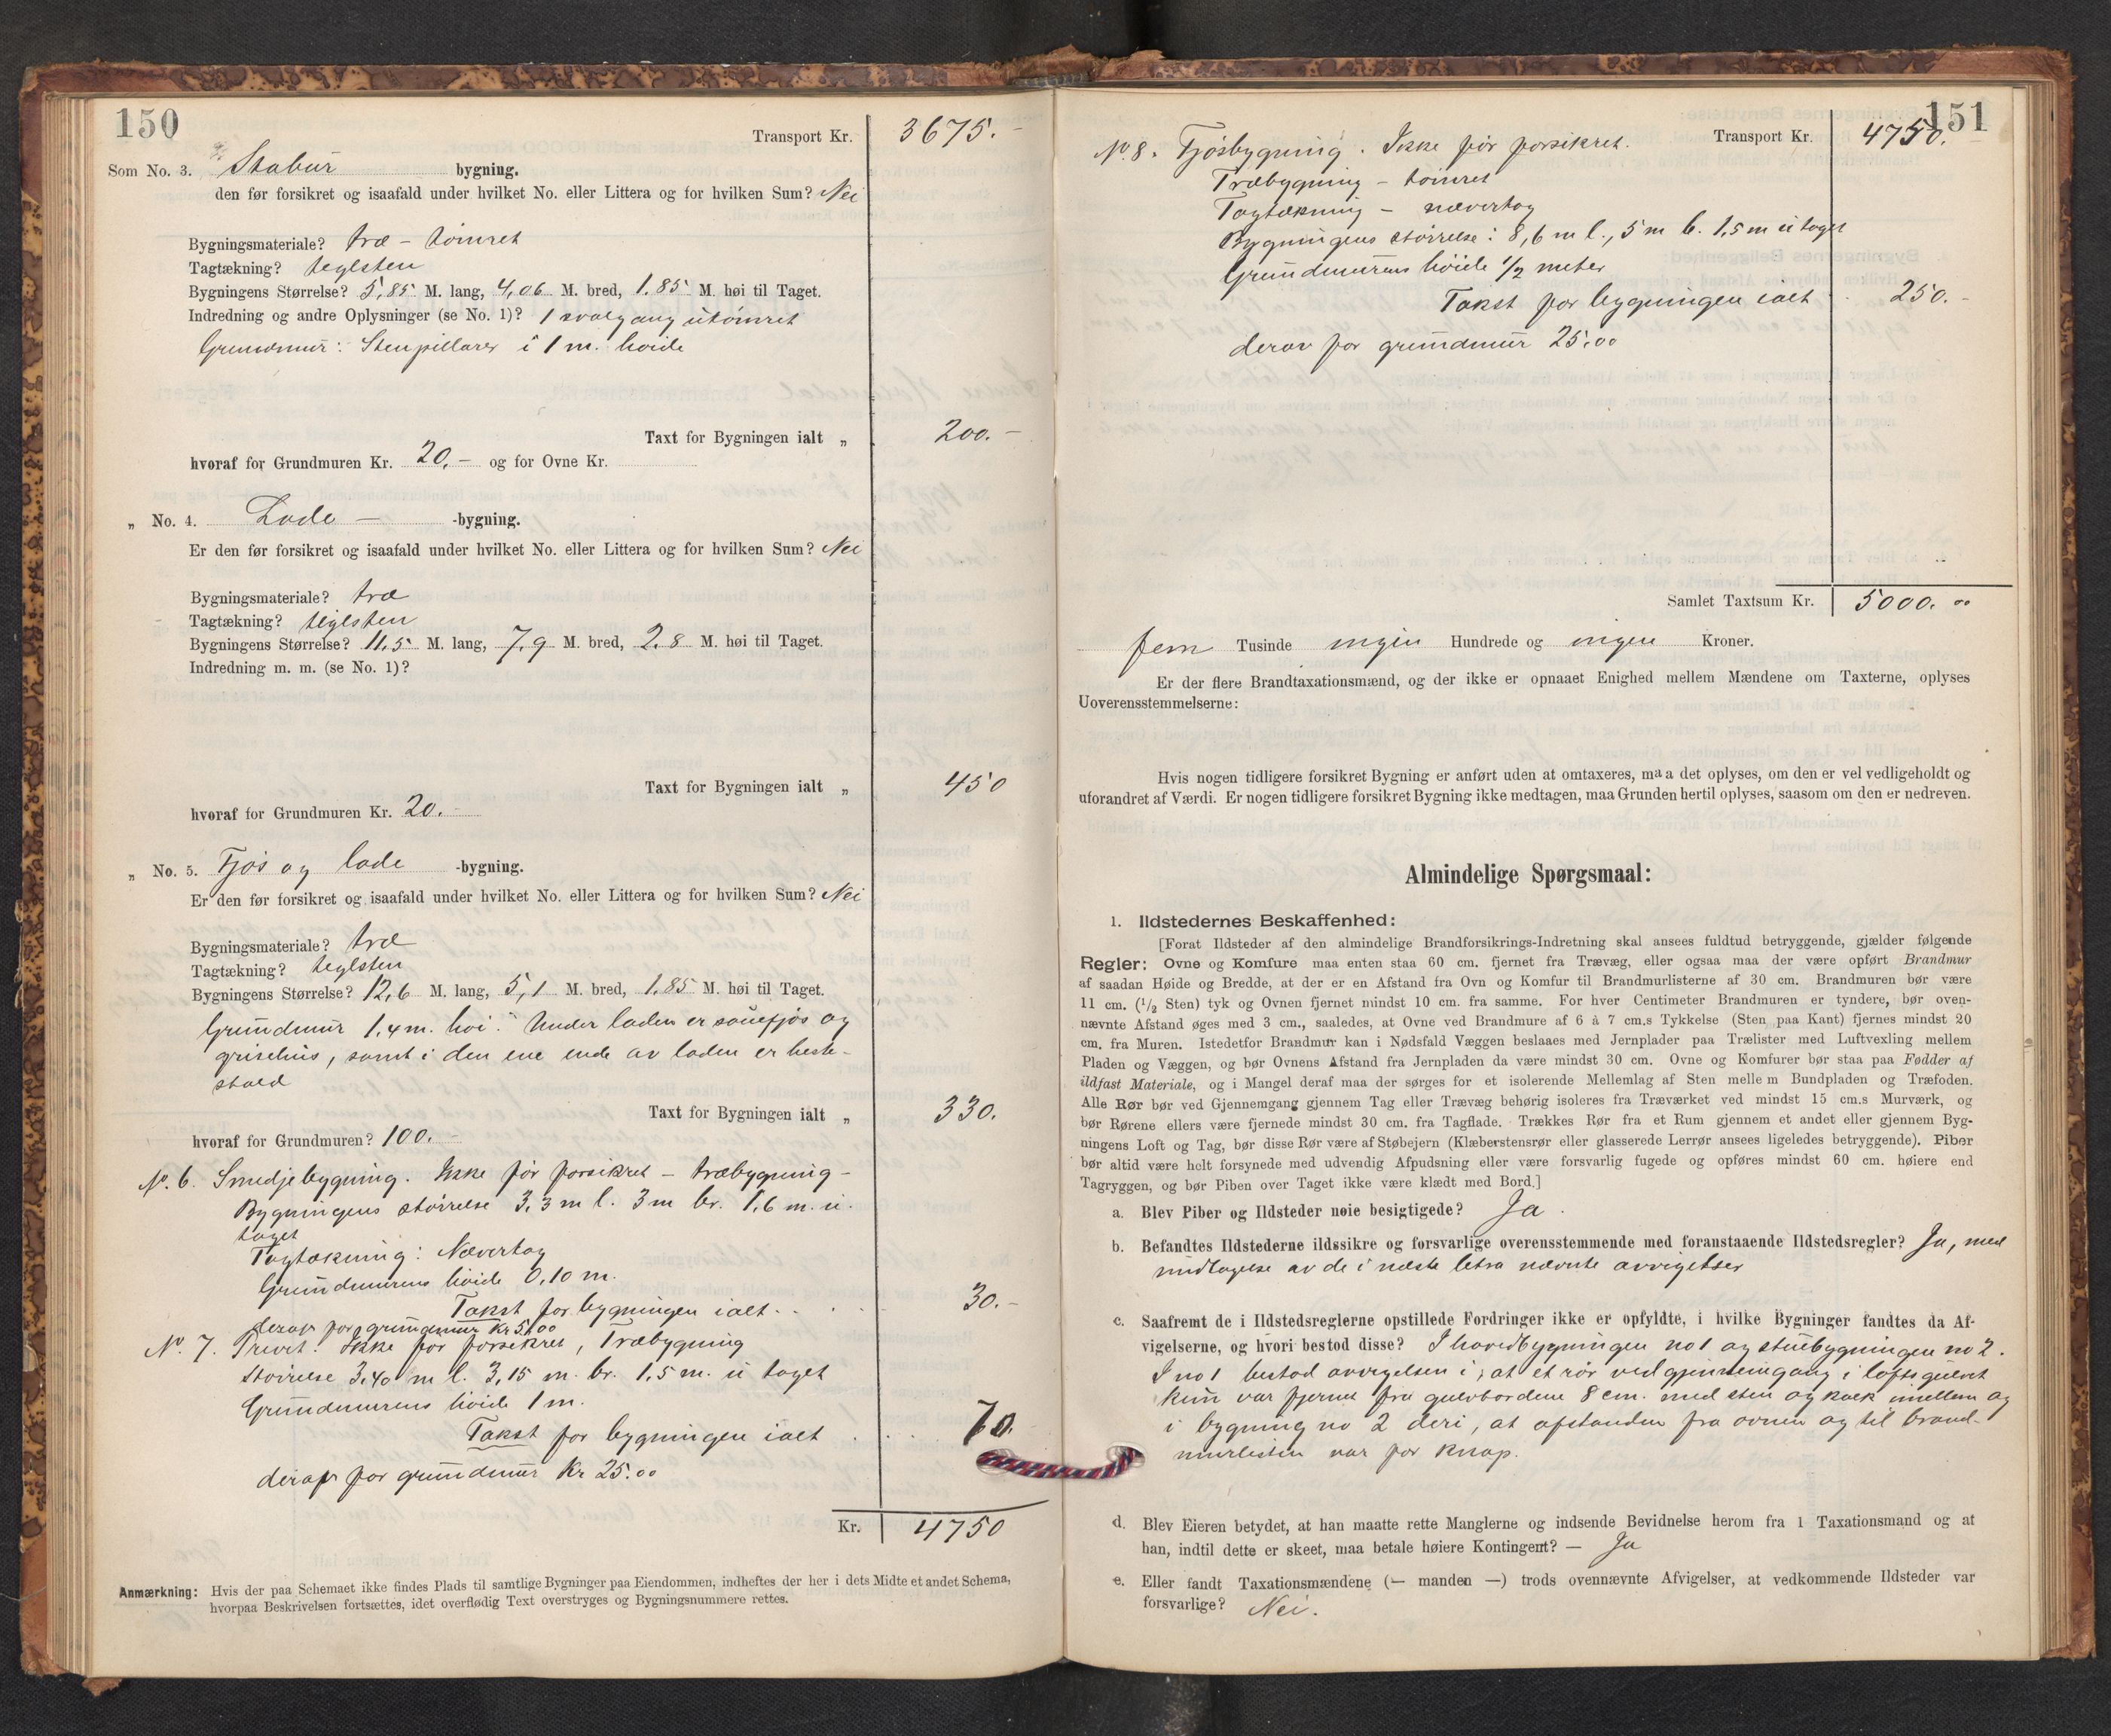 150
Transport Kr. 3675.-
Som No. 3. Stabur bygning.
den før forsikret og isaafald under hvilket No. eller Littera og for hvilken Sum? Nei
Bygningsmateriale? træ - tømret
Tagtækning? teglsten
Bygningens Størrelse? 5,85 M. lang, 4,06 M. bred, 1,85 M. høi til Taget.
Indredning og andre Oplysninger (se No. 1)? 1 svalgang utømret
Grundmur: Stenpillarer i 1 m. høide
Taxt for Bygningen ialt „ 200.-
hvoraf for Grundmuren Kr. 20.- og for Ovne Kr.
„ No. 4. Lade - -bygning.
Er den før forsikret og isaafald under hvilket No. eller Littera og for hvilken Sum? Nei
Bygningsmateriale? træ
Tagtækning? teglsten
Bygningens Størrelse? 11,5 M. lang, 7,9 M. bred, 2,8 M. høi til Taget.
Indredning m. m. (se No. 1)?
Taxt for Bygningen ialt „ 450
hvoraf for Grundmuren Kr. 20.-
„ No. 5. Fjøs og lade -bygning.
Er den før forsikret og isaafald under hvilket No. eller Littera og for hvilken Sum? Nei
Bygningsmateriale? træ
Tagtækning? teglsten
Bygningens Størrelse? 12,6 M. lang, 5,1 M. bred, 1,85 M. høi til Taget.
Grundmur 1,4 m. høi. Under laden er sauefjøs og
grisehus, samt i den ene ende av laden er heste-
stald
Taxt for Bygningen ialt „ 330.
hvoraf for Grundmuren? 100.-
No. 6. Smedjebygning. Ikke før forsikret - træbygning -
Bygningens størrelse 3,3 m l. 3 m br. 1,6 m. u.
taget
Tagtækning: Nævertag
Grundmurens høide 0,10 m.
Takst for bygningen ialt . . . 30.-
deraf for grundmur Kr 5,00
No. 7. Privet. Ikke før forsikret, Træbygning
Størrelse 3,40 m l. 3,15 m. br. 1,5 m. u taget
Grundmurens høide 1 m.
Takst for bygningen ialt . . . 70.
deraf for grundmur Kr 25.00
Kr. 4750
Anmærkning: Hvis der paa Schemaet ikke findes Plads til samtlige Bygninger paa Eiendommen, indheftes der her i dets Midte et andet Schema,
hvorpaa Beskrivelsen fortsættes, idet overflødig Text overstryges og Bygningsnummere rettes.
151
Transport Kr. 4750.
No 8. Fjøsbygning. Ikke før forsikret.
Træbygning - tømret
Tagtækning - nævertag
Bygningens størrelse: 8,6 m l., 5 m b. 1,5 m u taget
Grundmurens høide 1/2 meter
Takst for bygningen ialt . . 250.-
derav for grundmur 25,00
Samlet Taxtsum Kr. 5000.00
fem Tusinde ingen Hundrede og ingen Kroner.
Er der flere Brandtaxationsmænd, og der ikke er opnaaet Enighed mellem Mændene om Taxterne, oplyses
Uoverensstemmelserne:
Hvis nogen tidligere forsikret Bygning er anført uden at omtaxeres, maa det oplyses, om den er vel vedligeholdt og
uforandret af Værdi. Er nogen tidligere forsikret Bygning ikke medtagen, maa Grunden hertil oplyses, saasom om den er nedreven.
Almindelige Spørgsmaal:
1. Ildstedernes Beskaffenhed:
[Forat Ildsteder af den almindelige Brandforsikrings-Indretning skal ansees fuldtud betryggende, gjælder følgende
Regler: Ovne og Komfure maa enten staa 60 cm. fjernet fra Trævæg, eller ogsaa maa der være opført Brandmur
af saadan Høide og Bredde, at der er en Afstand fra Ovn og Komfur til Brandmurlisterne af 30 cm. Brandmuren bør være
11 cm. (1/2 Sten) tyk og Ovnen fjernet mindst 10 cm. fra samme. For hver Centimeter Brandmuren er tyndere, bør oven-
nævnte Afstand øges med 3 cm., saaledes, at Ovne ved Brandmure af 6 à 7 cm.s Tykkelse (Sten paa Kant) fjernes mindst 20
cm. fra Muren. Istedetfor Brandmur kan i Nødsfald Væggen beslaaes med Jernplader paa Trælister med Luftvexling mellem
Pladen og Væggen, og bør Ovnens Afstand fra Jernpladen da være mindst 30 cm. Ovne og Komfurer bør staa paa Fødder af
ildfast Materiale, og i Mangel deraf maa der sørges for et isolerende Mellemlag af Sten mellem Bundpladen og Træfoden.
Alle Rør bør ved Gjennemgang gjennem Tag eller Trævæg behørig isoleres fra Træværket ved mindst 15 cm.s Murværk, og
bør Rørene ellers være fjernede mindst 30 cm. fra Tagflade. Trækkes Rør fra et Rum gjennem et andet eller gjennem Byg-
ningens Loft og Tag, bør disse Rør være af Støbejern (Klæberstensrør eller glasserede Lerrør ansees ligeledes betryggende). Piber
bør altid være helt forsynede med udvendig Afpudsning eller være forsvarlig fugede og opføres mindst 60 cm. høiere end
Tagryggen, og bør Piben over Taget ikke være klædt med Bord.]
a. Blev Piber og Ildsteder nøie besigtigede? Ja.
b. Befandtes Ildstederne ildssikre og forsvarlige overensstemmende med foranstaaende Ildstedsregler? Ja, med
undtagelse av de i næste letra nævnte avvigelser
c. Saafremt de i Ildstedsreglerne opstillede Fordringer ikke er opfyldte, i hvilke Bygninger fandtes da Af-
vigelserne, og hvori bestod disse? I hovedbygningen no 1 og stuebygningen no 2.
I no 1 bestod avvigelsen i, at et rør ved gjennemgang i loftsgulvet
kun var fjernet fra gulvbordene 8 cm. med sten og kalk imellem og
i bygning no 2 deri, at afstanden fra ovnen og til brand-
murlisten var for knap.
d. Blev Eieren betydet, at han maatte rette Manglerne og indsende Bevidnelse herom fra 1 Taxationsmand og at
han, indtil dette er skeet, maa betale høiere Kontingent? — Ja
e. Eller fandt Taxationsmændene (— manden —) trods ovennævnte Afvigelser, at vedkommende Ildsteder var
forsvarlige? Nei.